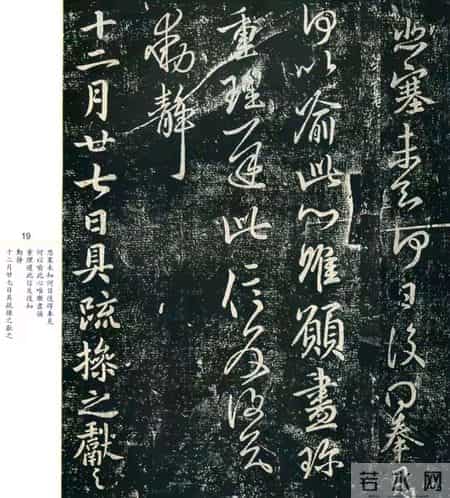 悲塞未知何日復得奉見
何以喻此心唯願盡珍
重理遲此信反復知
動靜
十二月廿七日具疏操之獻之
19
悲塞未知何日復得奉見
何以喻此心唯願盡珍
重理遲此信反復知
動靜
十二月廿七日具疏操之獻之
若水网